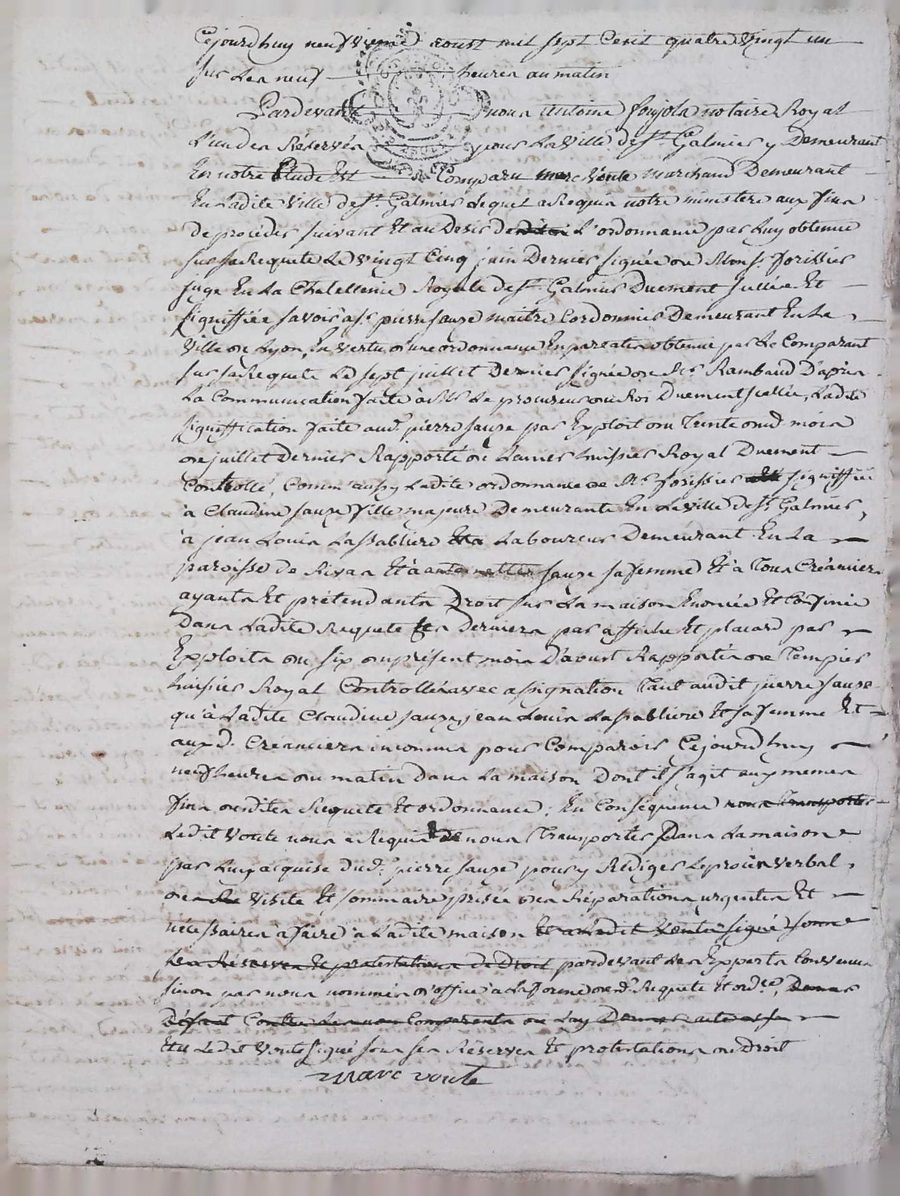 Cejourdhuy neufvieme aoust mil sept Cent quatre vingt un
sur Les neuf heures au matin
Pardevant nous antoine fonjols notaire Royal
L'un des Reservés pour La Ville de St. Galmier y Demeurant
En notre Etude Est Comparu marc Voute marchand Demeurant
En Ladite Ville de St. Galmier Lequel a Requis notre ministere aux fins
de proceder suivant Et au Desir de L'ordonnance par Luy obtenue
sur sa Requete Le vingt Cinq juin Dernier signée de Monsr. forissier
juge En La Chatellenie Royale de St. Galmier Duement scellée Et
signiffiée savoir a sr. pierre sauze maitre Cordonnier Demeurant En La
Ville de Lyon, En vertu d'une ordonnance En pareatis obtenue par Le Comparant
sur sa Requete Le sept juillet Dernier signée de Mr. Rambaud D'après
La Communication faite a Mr. Le procureur du Roi Duement scellée, Ladite
signiffication faite aud. pierre sauze par Exploit du Trente du mois
de juillet Dernier Rapporté de huissier Royal Duement
Controllé, Comm' aussy Ladite ordonnance de Mr. forissier signiffiée
à Claudine sauze fille majeure Demeurante En La ville de St. Galmier,
à jean Louis Lassabliere Laboureur Demeurant En La
paroisse de Rivas Et à antoinette sauze sa femme Et à Tous Créanciers
ayants Et prétendants Droit sur La maison Enoncée Et Confinée
Dans Ladite Requete Ces Derniers par affiche Et placard par
Exploits du six du présent mois D'aoust Rapportés de Tempier
huissier Royal Controllés avec assignation Tant audit pierre sauze
qu'à Ladite Claudine sauze, jean Louis Lassabliere Et sa femme Et
auxd. Créanciers inconnus pour Comparoir Cejourdhuy
neuf heures du matin Dans La maison Dont il s'agit aux memes
fins desdites Requete Et ordonnance; En Conséquence nous Transporter
Ledit Voute nous a Requis de nous Transporter Dans La maison
par Luy acquise dud. pierre sauze pour y Rediger Le procès Verbal
de Visite Et sommaire prisée des Réparations urgentes Et
nécessaires a faire à Ladite maison Et a Ledit Voute signé sous
Les Réserves Et protestations de Droit pardevant Les Experts Convenus
sinon par nous nommés d'office a La forme desd. Requete Et ord.ce, Donner
Défaut Contre Les non Comparants du Luy Donner acte
Et a Ledit Voute signé sous ses Réserves Et protestations de Droit
marc voute